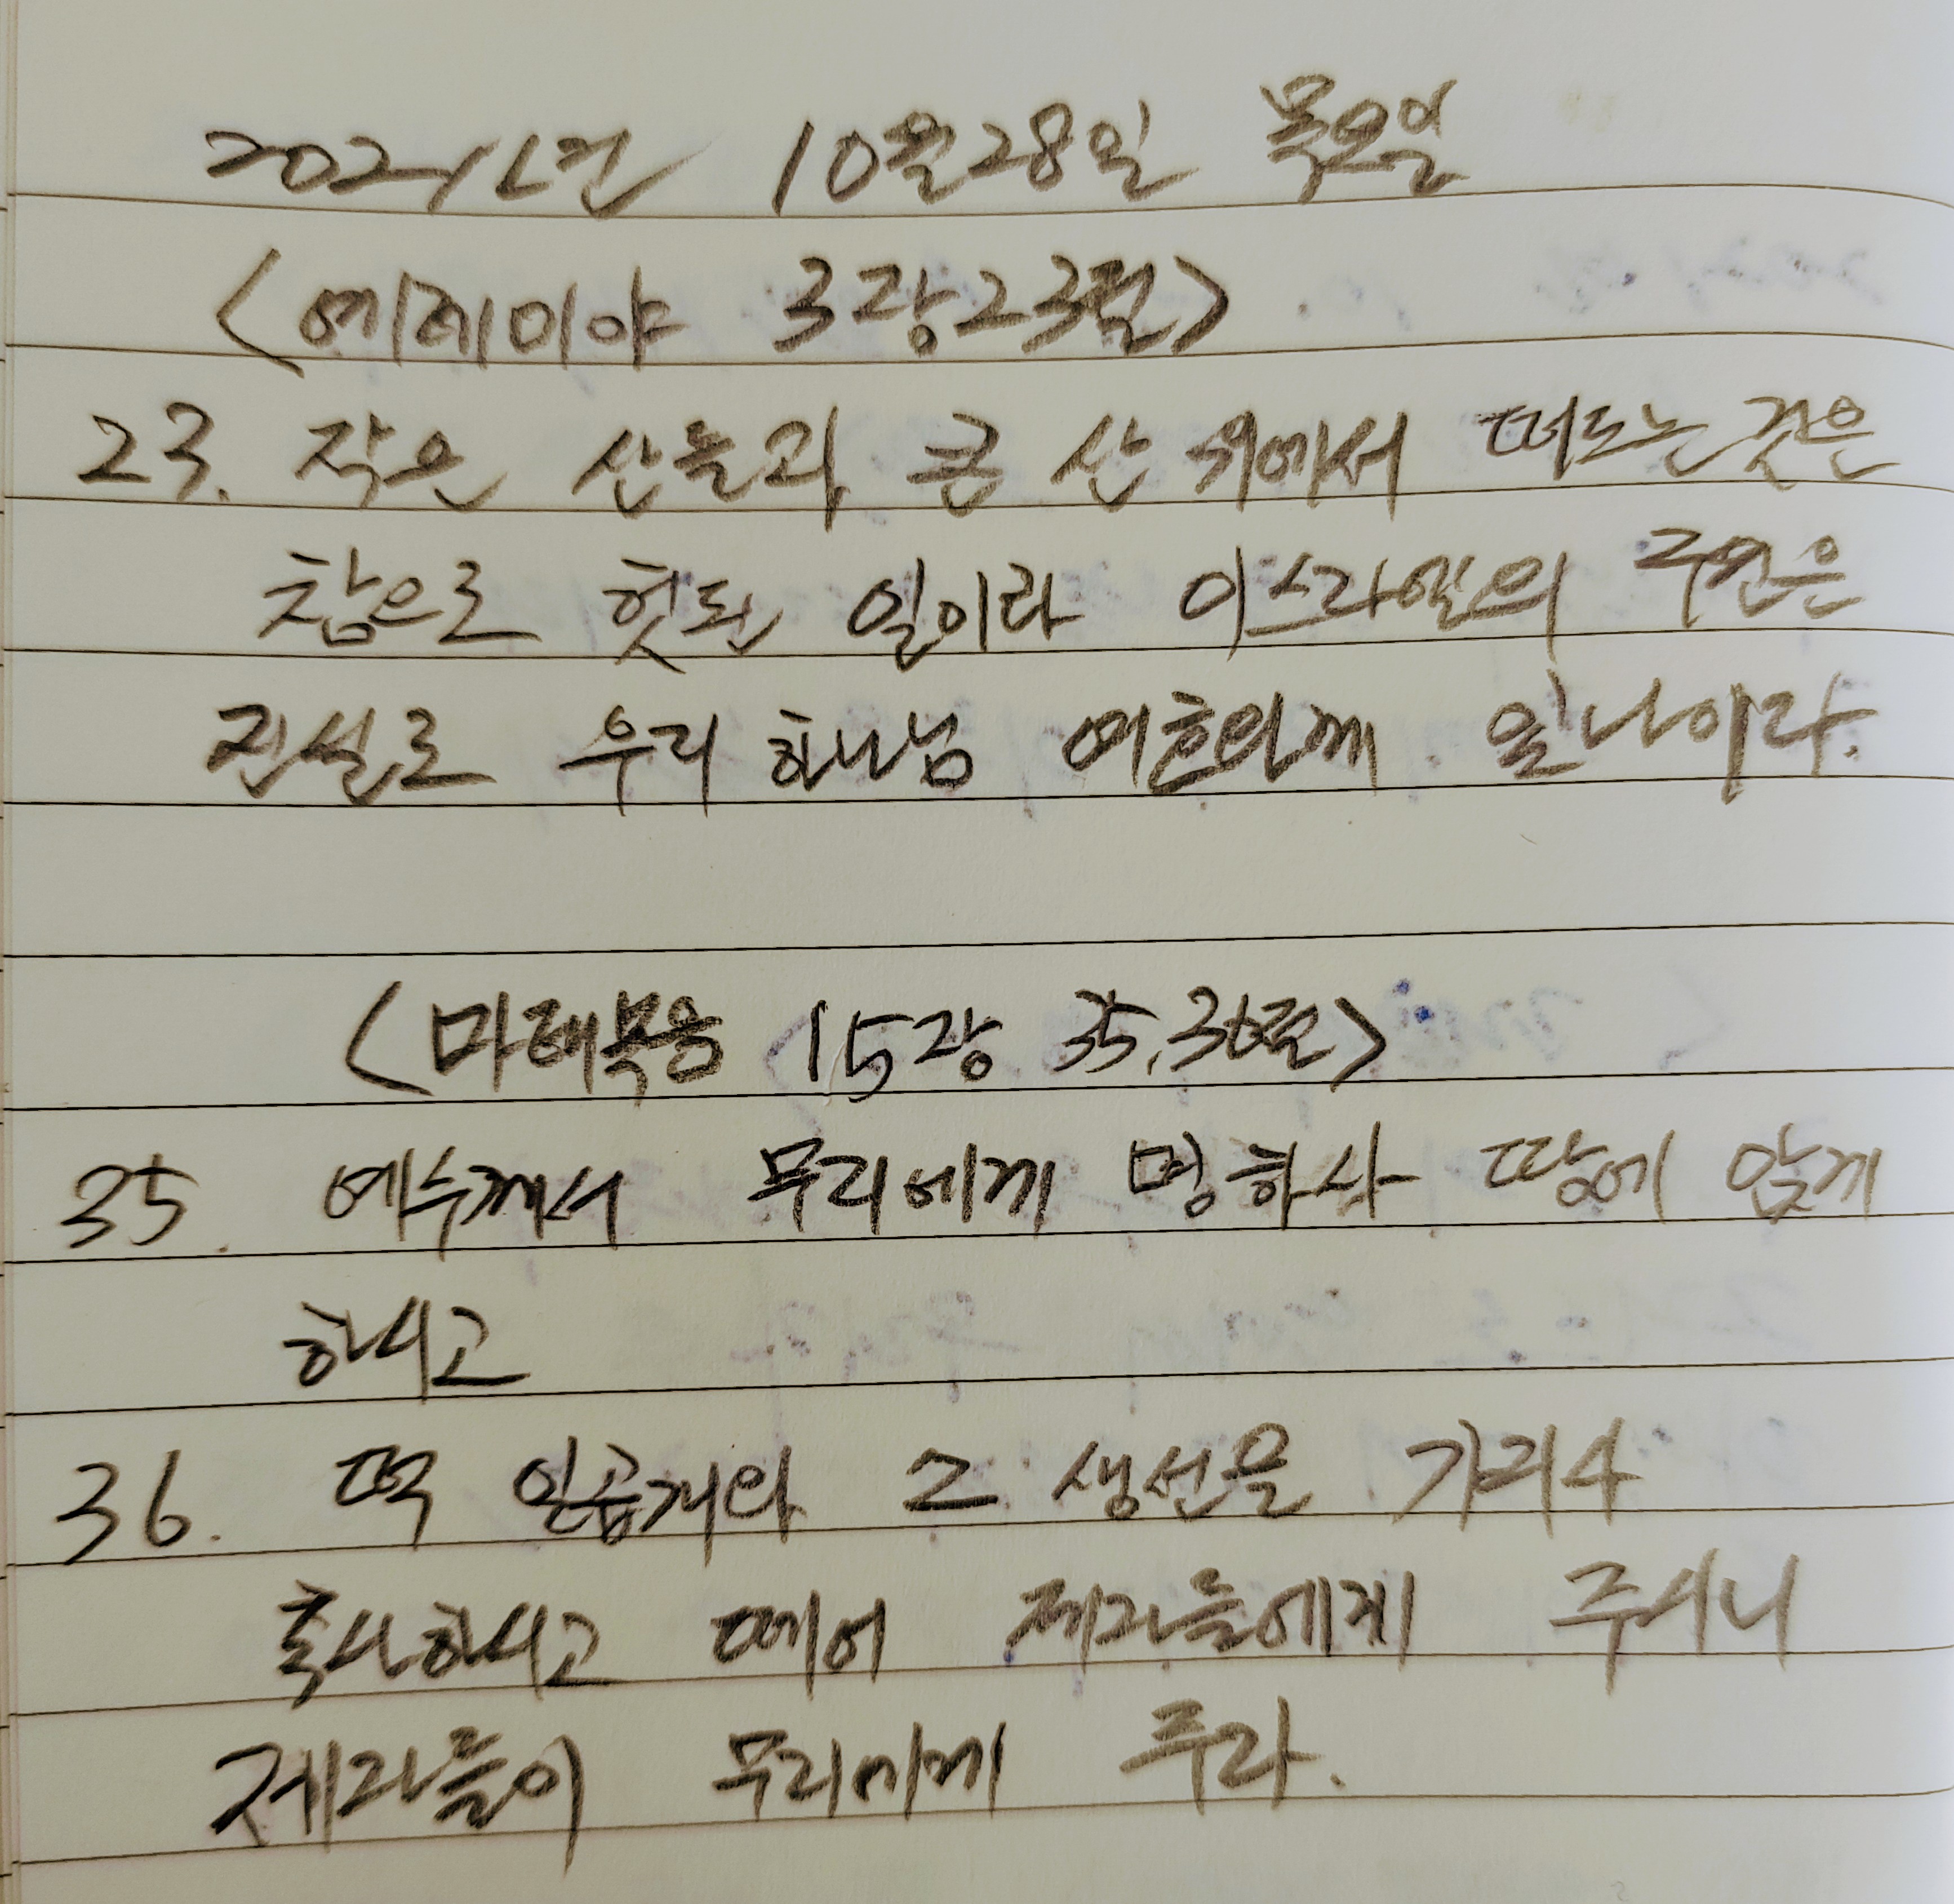 2021년 10월28일 목요일
<예레미야 3장23절>
23. 작은 산들과 큰 산 위에서 떠드는 것은
참으로 헛된 일이라 이스라엘의 구원은
진실로 우리 하나님 여호와께 있나이다.
<마태복음 15장 35,36절>
35. 예수께서 무리에게 명하사 땅에 앉게
하시고
36. 떡 일곱개와 그 생선을 가지사
축사하시고 떼어 제자들에게 주시니
제자들이 무리에게 주라.